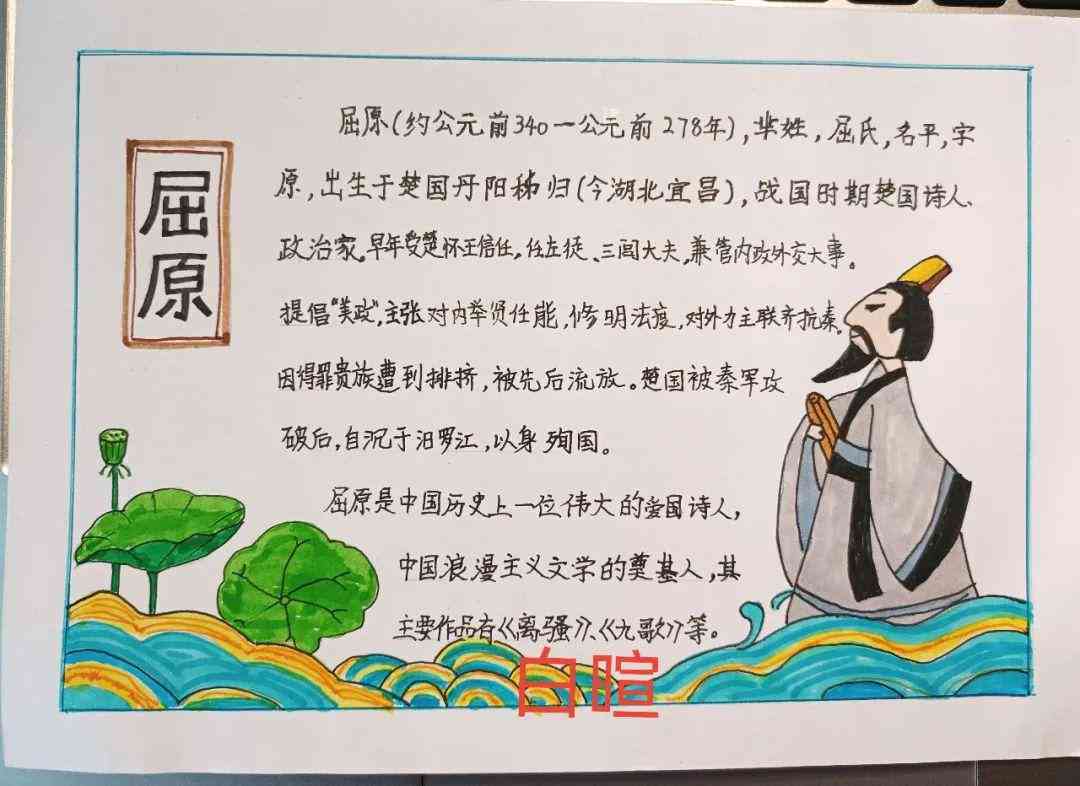 屈原
屈原(约公元前340一公元前278年),芈姓,屈氏,名平,字
原,出生于楚国丹阳秭归(今湖北宜昌),战国时期楚国诗人、
政治家。早年受楚怀王信任,任左徒、三闾大夫,兼管内政外交大事。
提倡“美政”,主张对内举贤任能,修明法度,对外力主联齐抗秦。
因得罪贵族遭到排挤,被先后流放。楚国被秦军攻
破后,自沉于汨罗江,以身殉国。
屈原是中国历史上一位伟大的爱国诗人,
中国浪漫主义文学的奠基人,其
主要作品有《离骚》、《九歌》等。
白暄